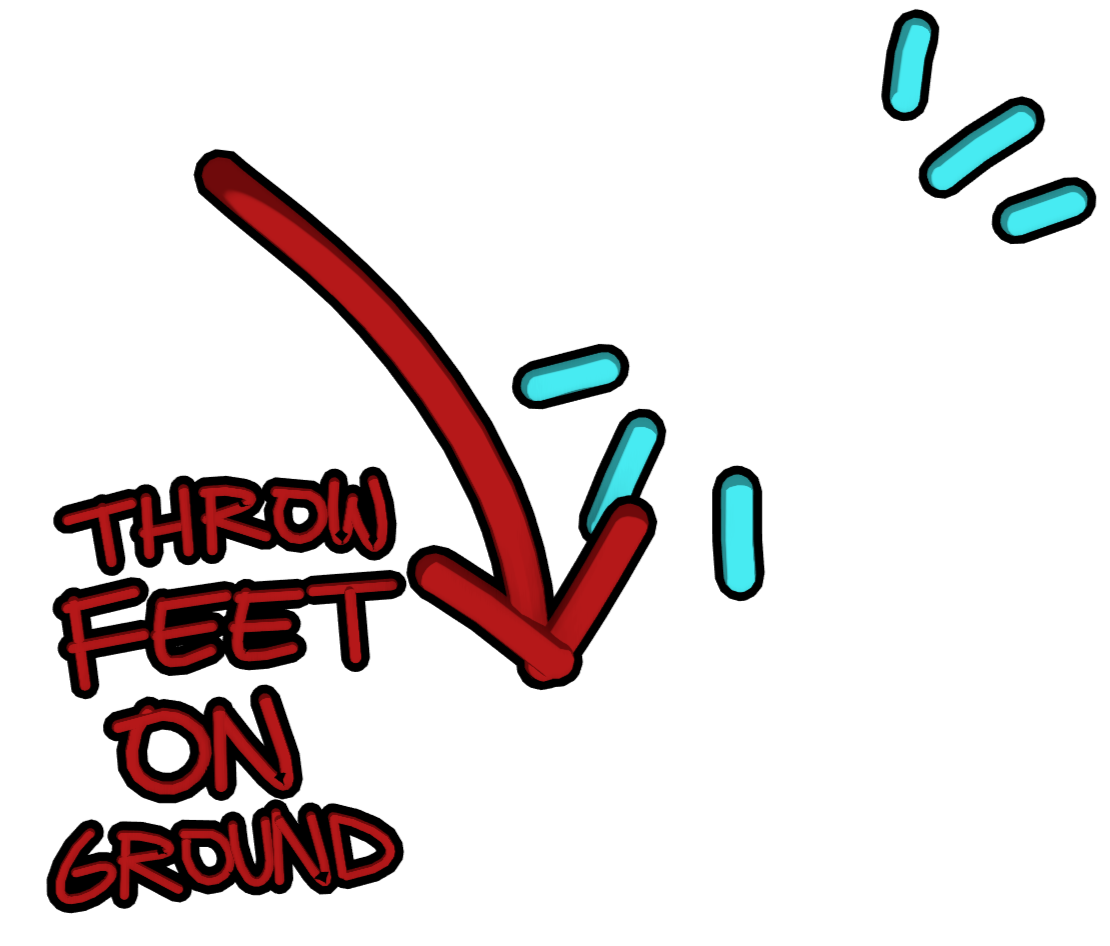 THROW
FEET
ON
GROUND